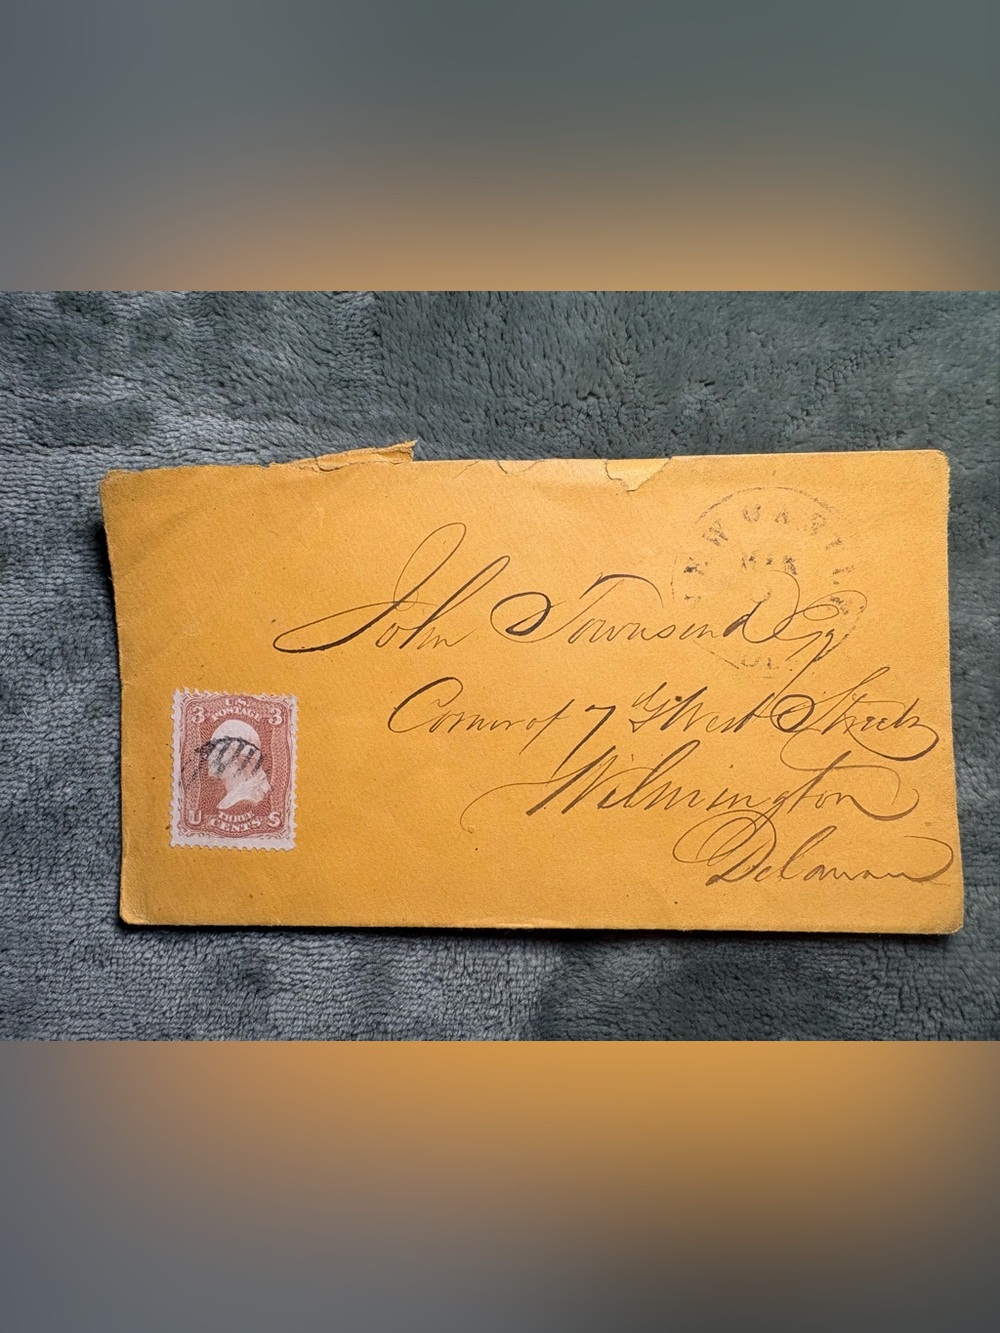 John Townsend Esq
Corner of 7th & West Streets
Wilmington
Delaware
3 U.S. 3
POSTAGE
THREE
U CENTS S